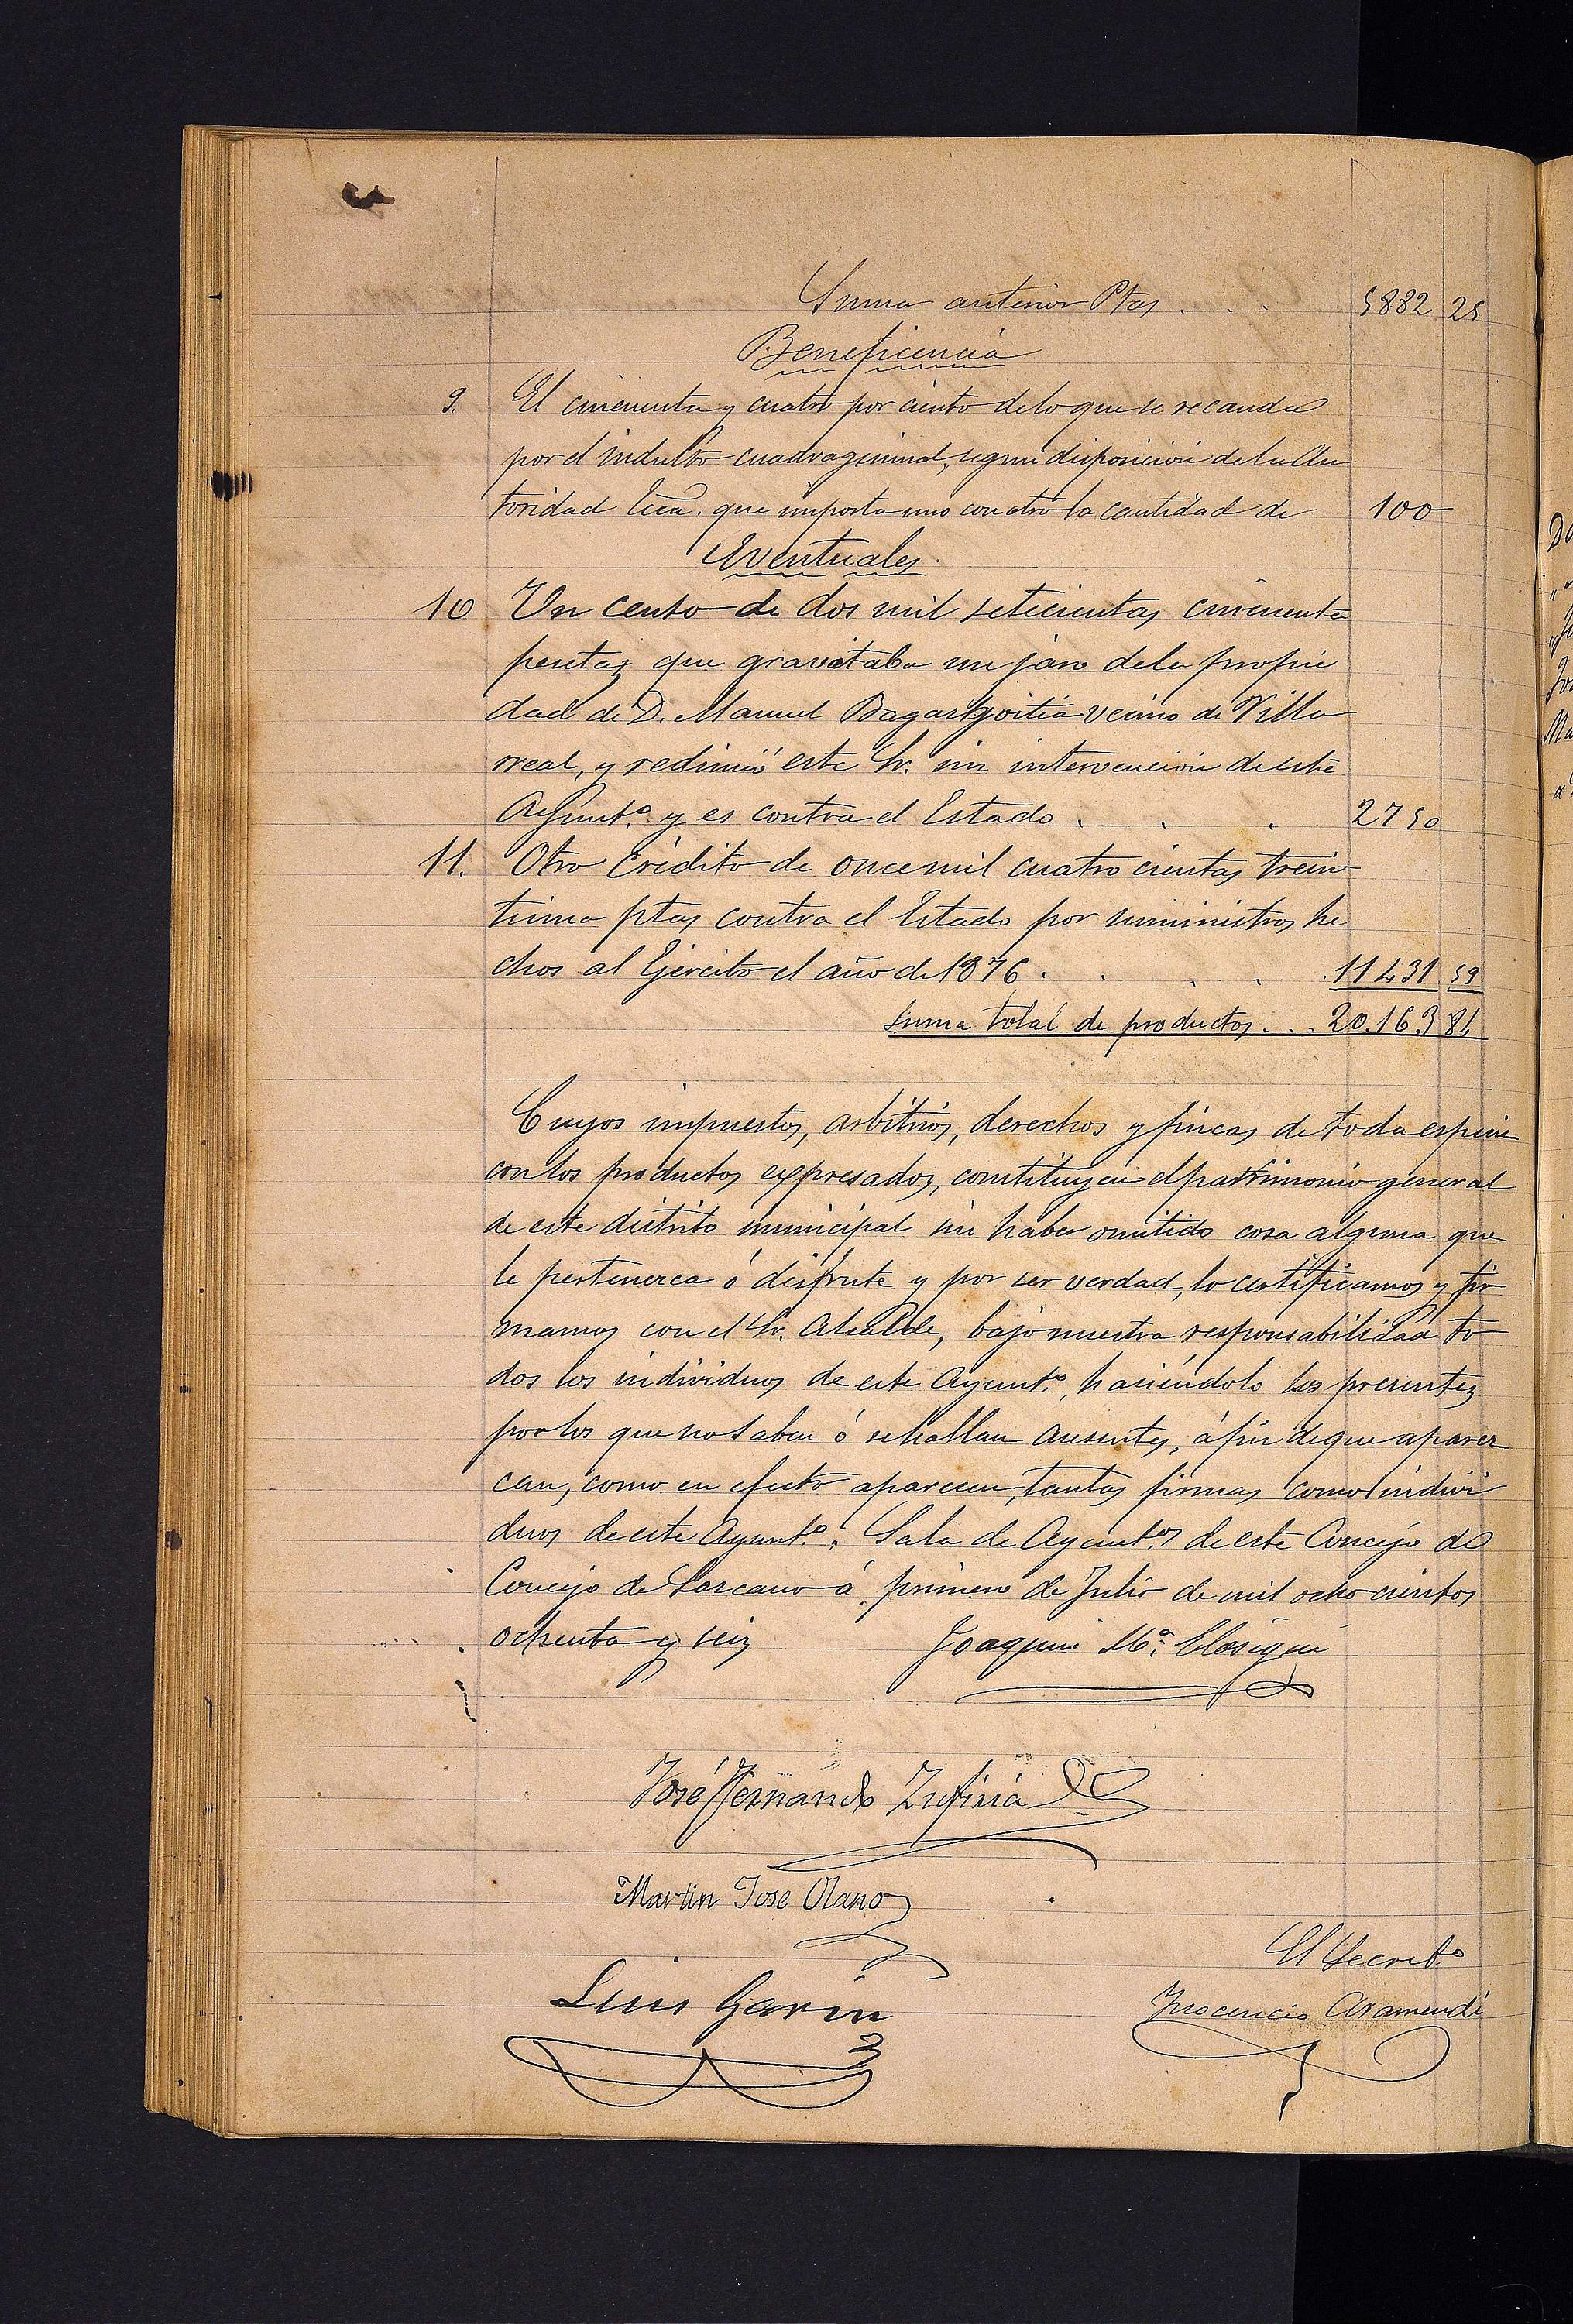 Suma anterior Ptas . . . 5882 25
Beneficencia
9. El cincuenta y cuatro por ciento de lo que se recauda
por el indulto cuadragesimal, segun disposición de la Au
toridad Ecca. que importa uno con otro la cantidad de 100
Eventuales.
10 Un censo de dos mil setecientas cincuenta
pesetas que gravitaba en jaro de la propie
dad de D. Manuel Bagasgoitia vecino de Villa
rreal, y redimió este Sr. sin intervención de este
Ayunt.º y es contra el Estado . . . 2750
11. Otro crédito de once mil cuatro cientas trein
tiuna ptas contra el Estado por suministros he
chos al Ejército el año de 1876 . . . . 11431 59
Suma total de productos . . . 20.163 84
Cuyos impuestos, arbitrios, derechos y fincas de toda especie
con los productos expresados, constituyen el patrimonio general
de este distrito municipal sin haber omitido cosa alguna que
le pertenezca ó disfrute y por ser verdad, lo certificamos y fir
mamos con el Sr. Alcalde, bajo nuestra responsabilidad to
dos los individuos de este Ayunt.º, haciéndolo los presentes
por los que no saben ó se hallan ausentes, á fin de que aparez
can, como en efecto aparecen, tantas firmas como indivi
duos de este Ayunt.º. Sala de Ayunt.º de este Concejo de
Concejo de Lazcano á primero de Julio de mil ocho cientos
ochenta y seis Joaquin M.ª Elosegui
José Fernando Zufiria
Martin Jose Olano
El Secret.º
Luis Garin
Inocencio Aramendi